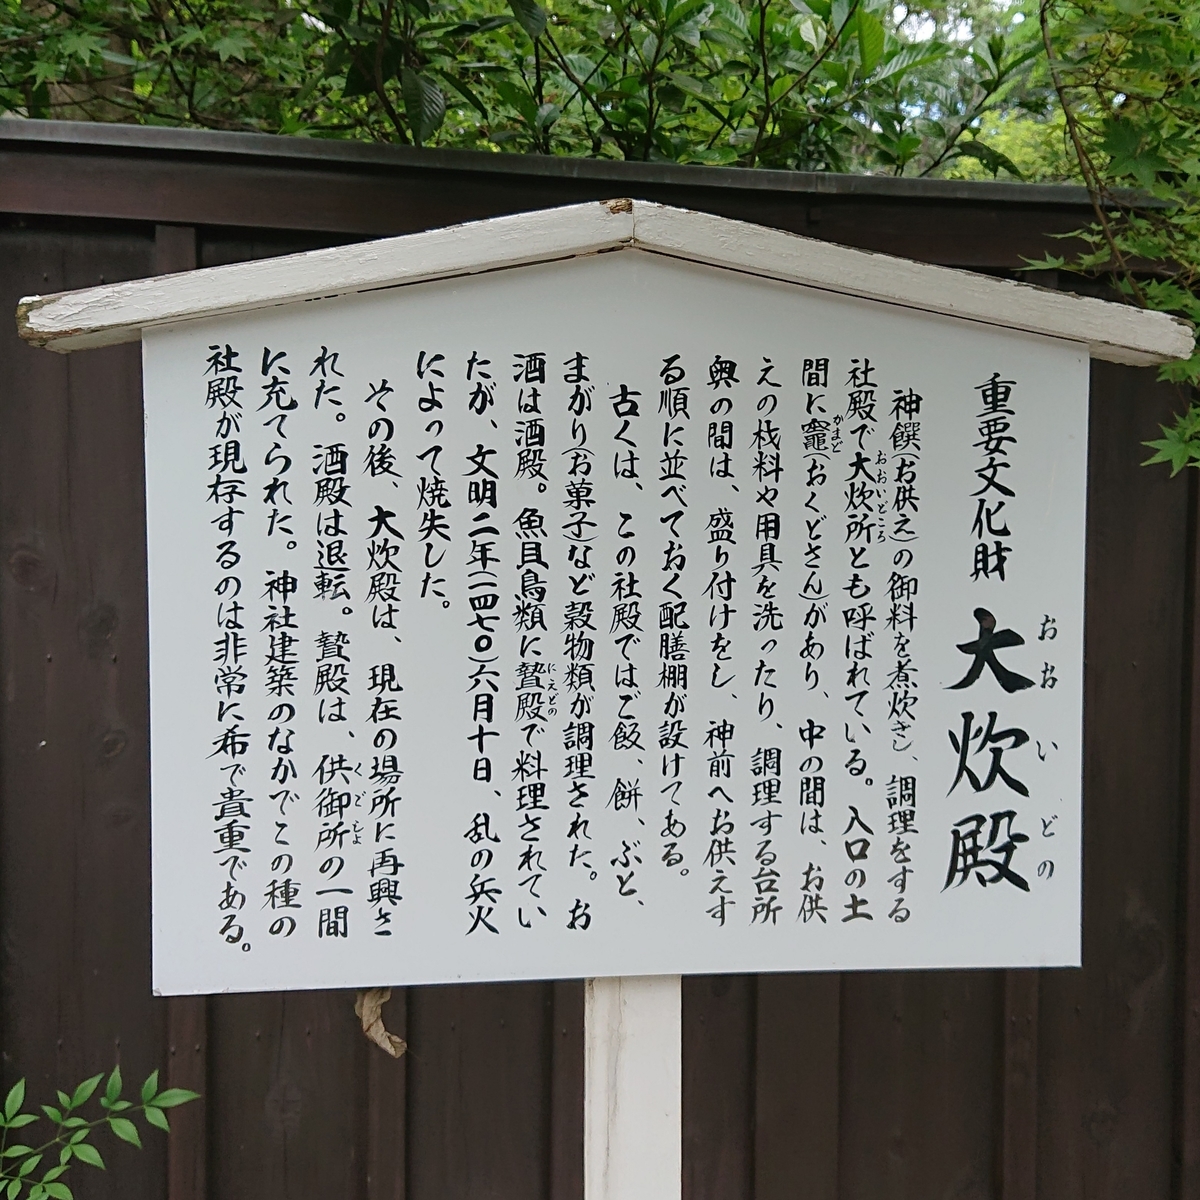 重要文化財 大炊殿
おおいどの
神饌(お供え)の御料を煮炊きし、調理をする
社殿で大炊所とも呼ばれている。入口の土
おおいどころ
間に竈(おくどさん)があり、中の間は、お供
かまど
えの材料や用具を洗ったり、調理する台所
奥の間は、盛り付けをし、神前へお供えす
る順に並べておく配膳棚が設けてある。
古くは、この社殿ではご飯、餅、ぶと、
まがり(お菓子)など穀物類が調理された。お
酒は酒殿。魚貝鳥類に贄殿で料理されてい
にえどの
たが、文明二年(一四七〇)六月十日、乱の兵火
によって焼失した。
その後、大炊殿は、現在の場所に再興さ
れた。酒殿は退転。贄殿は、供御所の一間
くごしょ
に充てられた。神社建築のなかでこの種の
社殿が現存するのは非常に希で貴重である。